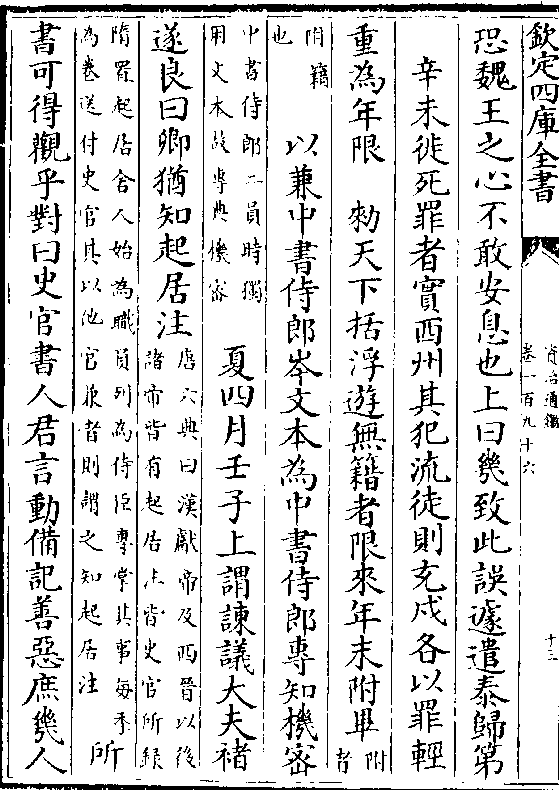 欽定四庫全書
資治通鑑
卷一百九十六
十二
恐魏王之心不敢安息也上曰幾致此誤遽遣泰歸第
辛未徙死罪者實西州其犯流徒則充戍各以罪輕
重為年限 勑天下括浮遊無籍者限來年末附畢
附者
附籍
也
以兼中書侍郎岑文本為中書侍郎專知機密
中書侍郎二員時獨
用文本故專典機密
夏四月壬子上謂諫議大夫褚
遂良曰卿猶知起居注
唐六典曰漢獻帝及西晉以後
諸帝皆有起居注皆史官所録
隋置起居舍人始為職員列為侍臣專掌其事每季
為卷送付史官其以他官兼者則謂之知起居注
所
書可得觀乎對曰史官書人君言動備記善惡庶幾人